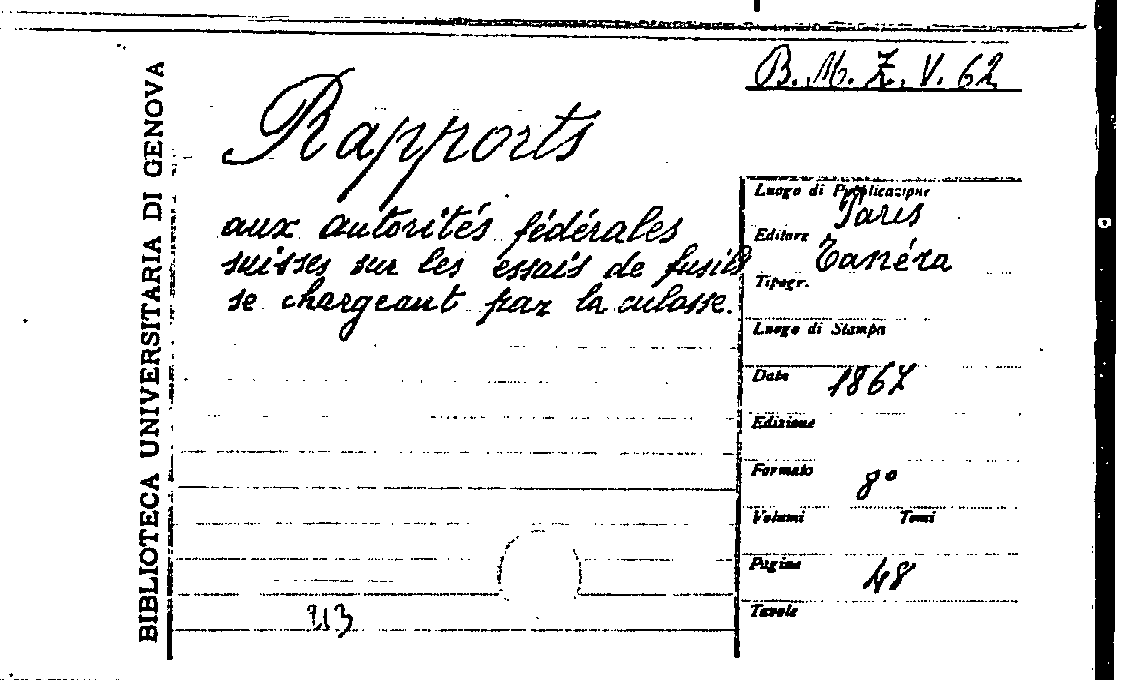 B.M.Z.V.62
BIBLIOTECA UNIVERSITARIA DI GENOVA
Rapports
aux autorités fédérales
suisses sur les essais de fusils
se chargeant par la culasse.
213
Luogo di Pubblicazione
Paris
Editore
Tanéra
Tipogr.
Luogo di Stampa
Data 1867
Edizione
Formato 8°
Volumi Tomi
Pagine 48
Tavole